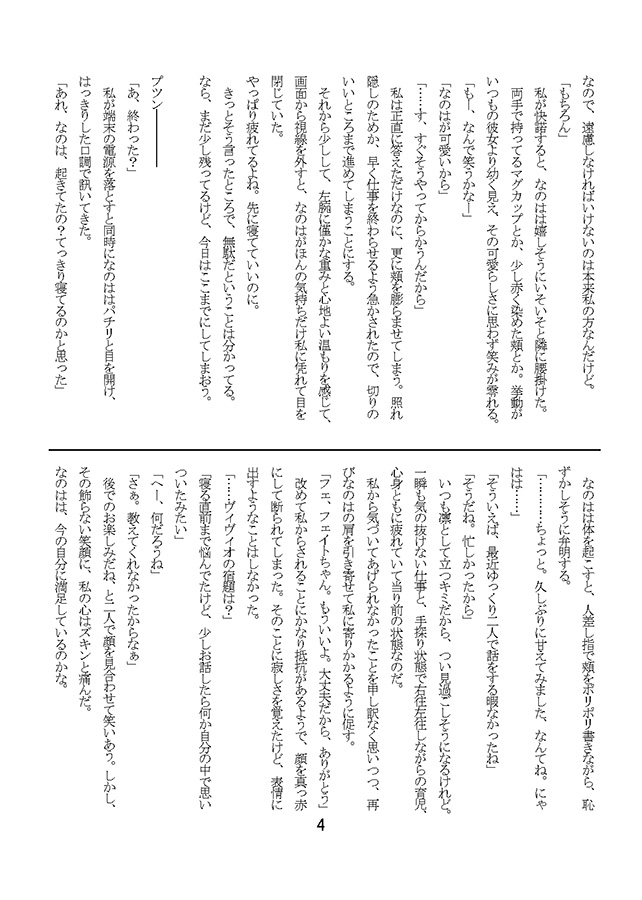 なので、遠慮しなければいけないのは本来私の方なんだけど。
「もちろん」
私が快諾すると、なのはは嬉しそうにいそいそと隣に腰掛けた。
両手で持ってるマグカップとか、少し赤く染めた頬とか。挙動が
いつもの彼女より幼く見え、その可愛らしさに思わず笑みが零れる。
「もー、なんで笑うかなー」
「なのはが可愛いから」
「……す、すぐそうやってからかうんだから」
私は正直に答えただけなのに、更に頬を膨らませてしまう。照れ
隠しのためか、早く仕事を終わらせるよう急かされたので、切りの
いいところまで進めてしまうことにする。
それから少しして、左腕に僅かな重みと心地よい温もりを感じて、
画面から視線を外すと、なのはがほんの気持ちだけ私に凭れて目を
閉じていた。
やっぱり疲れてるよね。先に寝てていいのに。
きっとそう言ったところで、無駄だということは分かってる。
なら、まだ少し残ってるけど、今日はここまでにしてしまおう。
プツン――――
「あ、終わった？」
私が端末の電源を落とすと同時になのははパチリと目を開け、
はっきりした口調で訊いてきた。
「あれ、なのは、起きてたの？てっきり寝てるのかと思った」
なのはは体を起こすと、人差し指で頬をポリポリ書きながら、恥
ずかしそうに弁明する。
「…………ちょっと。久しぶりに甘えてみました、なんてね。にゃ
はは……」
「そういえば、最近ゆっくり二人で話をする暇なかったね」
「そうだね。忙しかったから」
いつも凛として立つキミだから、つい見過ごしそうになるけれど。
一瞬も気の抜けない仕事と、手探り状態で右往左往しながらの育児、
心身ともに疲れていて当り前の状態なのだ。
私から気づいてあげられなかったことを申し訳なく思いつつ、再
びなのはの肩を引き寄せて私に寄りかかるように促す。
「フェ、フェイトちゃん。もういいよ。大丈夫だから、ありがとう」
改めて私からされることにかなり抵抗があるようで、顔を真っ赤
にして断られてしまった。そのことに寂しさを覚えたけど、表情に
出すようなことはしなかった。
「……ヴィヴィオの宿題は？」
「寝る直前まで悩んでたけど、少しお話したら何か自分の中で思い
ついたみたい」
「へー、何だろうね」
「さぁ。教えてくれなかったからなぁ」
後でのお楽しみだね、と二人で顔を見合わせて笑いあう。しかし、
その飾らない笑顔に、私の心はズキンと痛んだ。
なのはは、今の自分に満足しているのかな。
4